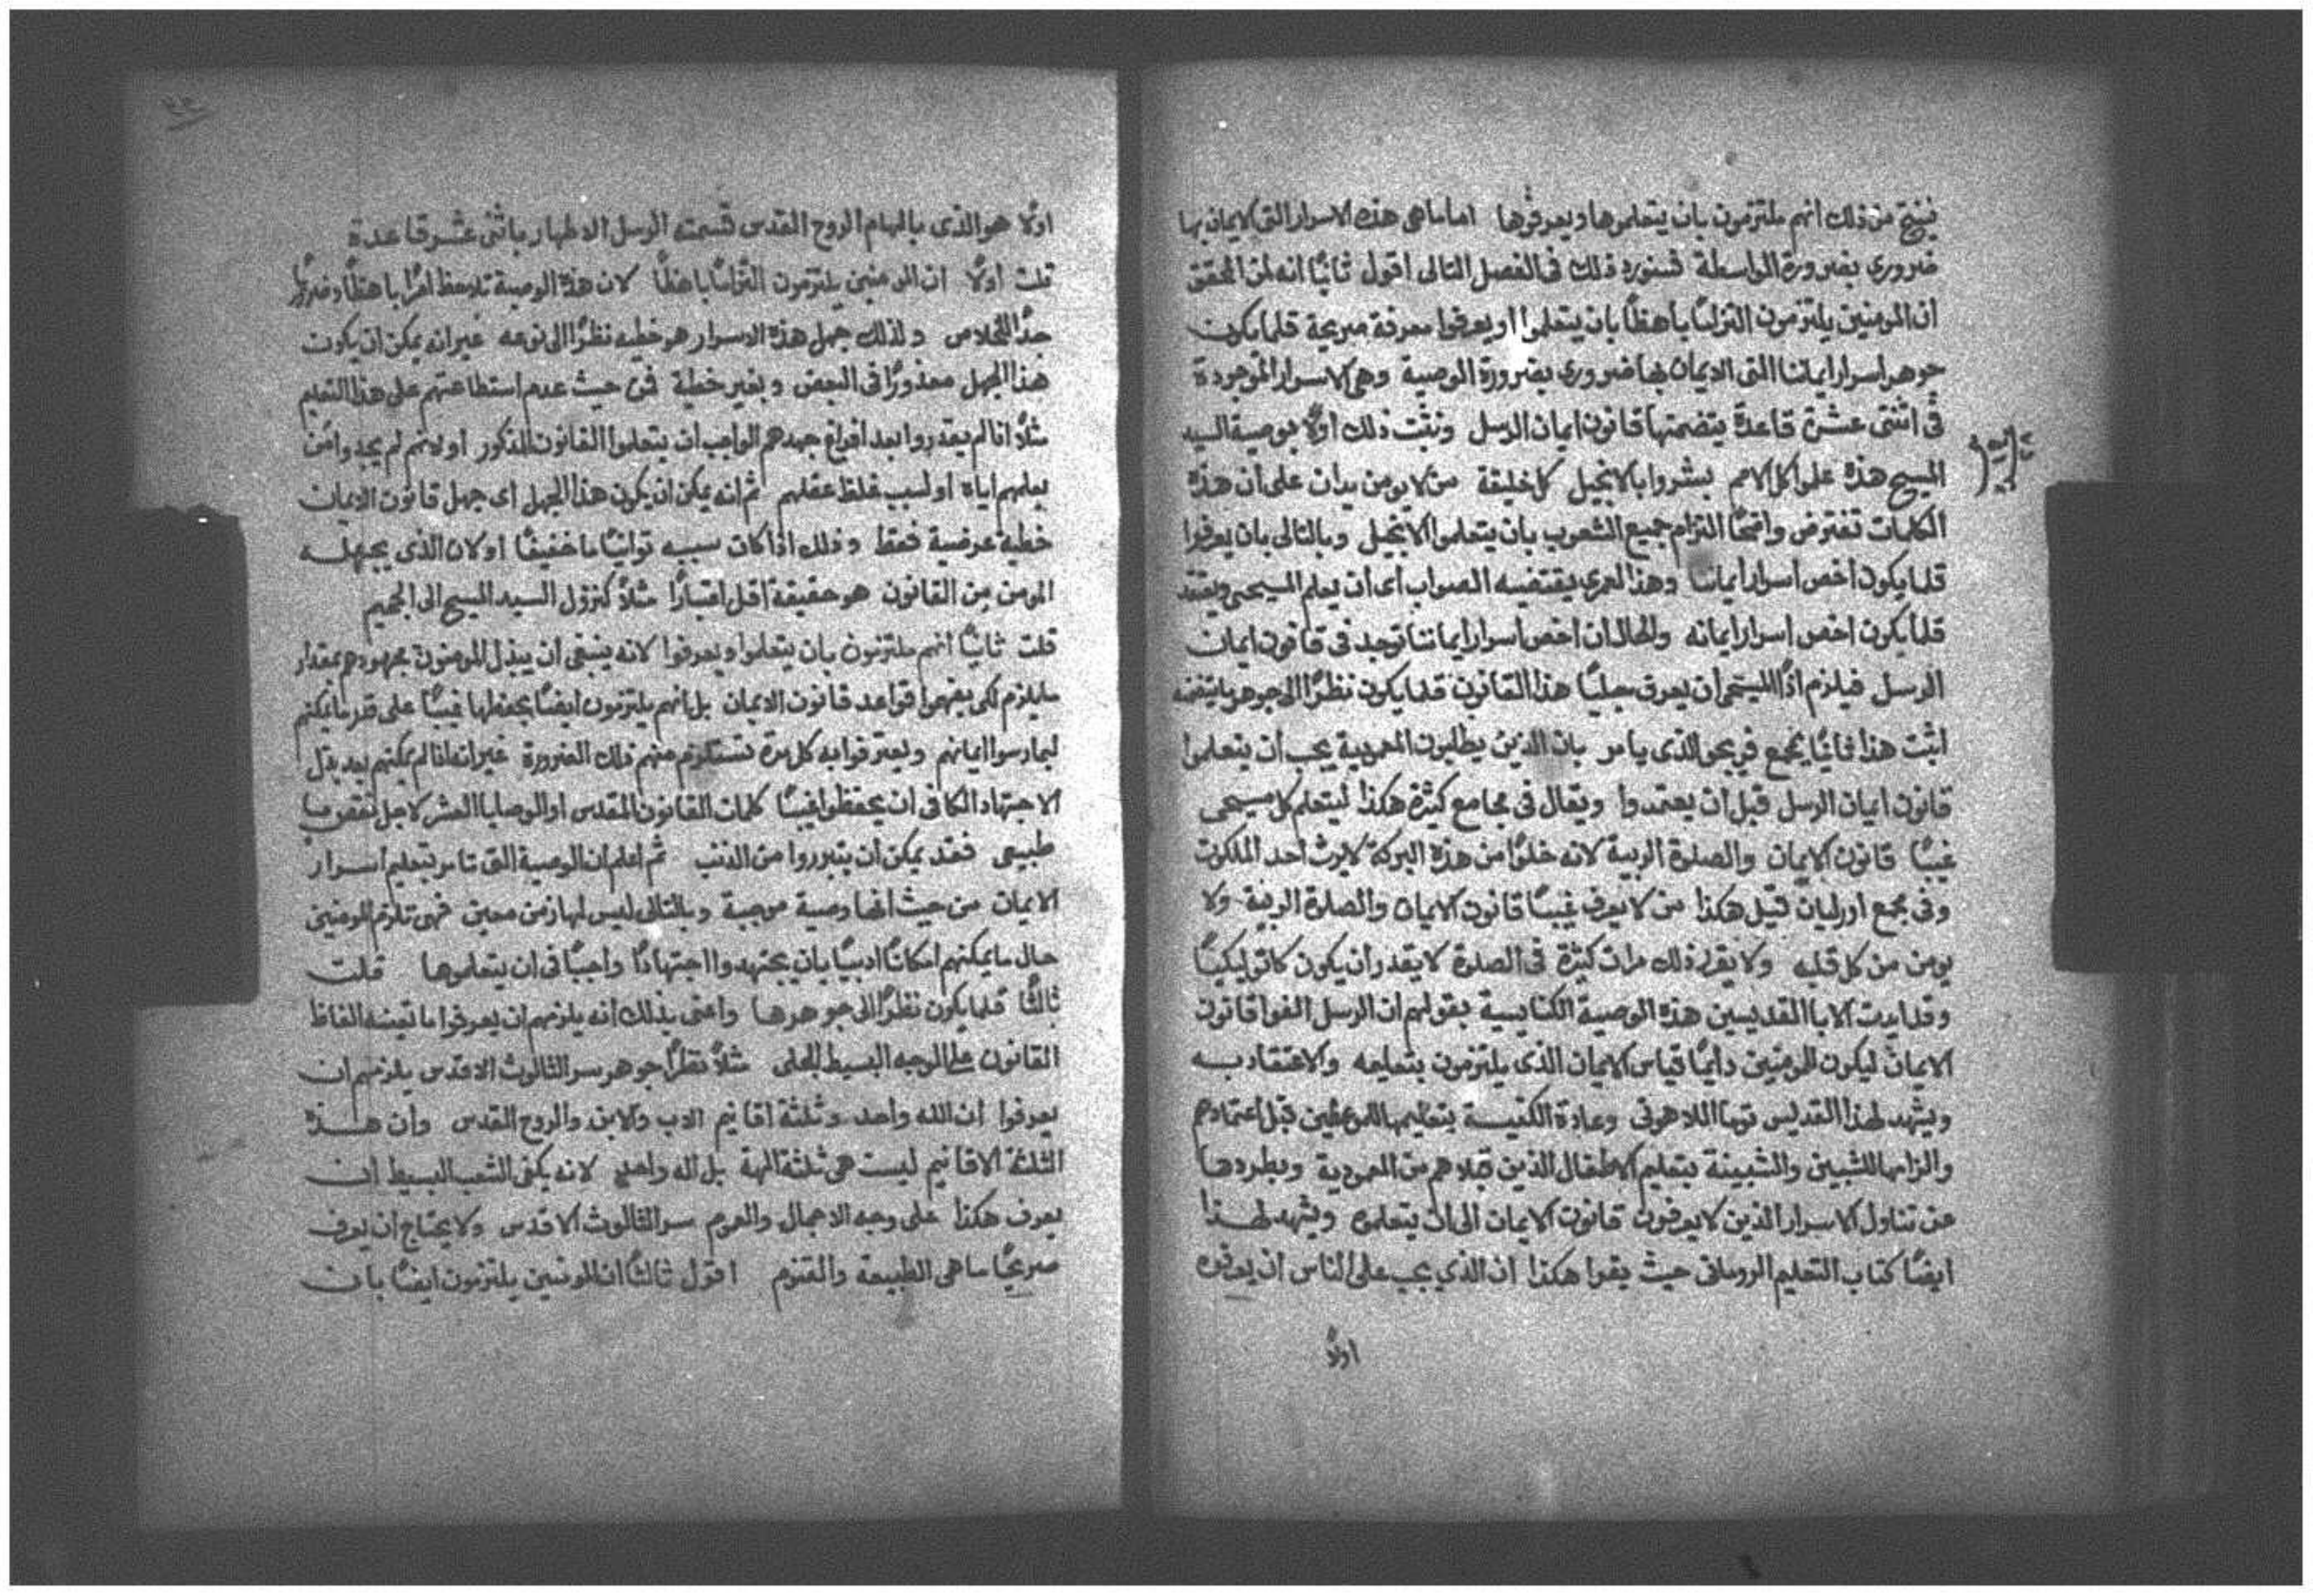 ينتج من ذلك انهم ملتزمون بان يتعلموها ويعرفوها اما ما هى هذه الاسرار التى الايمان بها
ضرورى بضرورة الواسطة فسنورد ذلك فى الفصل التالى اقول ثانيًا انه لمن المحقق
ان المومنين يلتزمون التزامًا باهظًا بان يتعلموا او يعرفوا معرفة صريحة قلما يكون
جوهر اسرار ايماننا التى الايمان بها ضرورى بضرورة الوصية وهى الاسرار الموجودة
فى اثنتى عشرة قاعدة يتضمنها قانون ايمان الرسل ونثبت ذلك اولًا بوصية السيد
المسيح هذه علموا كل الامم بشروا بالانجيل كل خليقة من لا يومن يدان على ان هذه
الكلمات تفترض واضحًا التزام جميع الشعوب بان يتعلموا الانجيل وبالتالى بان يعرفوا
قلما يكون اخص اسرار ايماننا وهذا لعمرى يقتضيه الصواب اى ان يعلم المسيحى ويعتقد
قلما يكون اخص اسرار ايمانه والحال ان اخص اسرار ايماننا توجد فى قانون ايمان
الرسل فيلزم اذًا المسيحى ان يعرف جليًا هذا القانون قلما يكون نظرًا الى جوهر ما يتضمنه
اثبت هذا ثانيًا بمجمع الذى يامر بان الذين يطلبون المعمودية يجب ان يتعلموا
قانون ايمان الرسل قبل ان يعتمدوا ويقال فى مجامع كثيرة هكذا ليتعلم كل مسيحى
غيبًا قانون الايمان والصلوة الربية لانه خلوًا من هذه البركة لا يرث احد الملكوت
وفى مجمع اورليان قيل هكذا من لا يعرف غيبًا قانون الايمان والصلوة الربية ولا
يومن من كل قلبه ولا يقرا ذلك مرات كثيرة فى الصلوة لا يقدر ان يكون كاتوليكيًا
وقد ايدت الابا القديسين هذه الوصية الكنايسية بقولهم ان الرسل الفوا قانون
الايمان ليكون للمومنين دايمًا قياس الايمان الذى يلتزمون بتعليمه والاعتقاد به
ويشهد لهذا القديس توما اللاهوتى وعادة الكنيسة بتعليمها للموعظين قبل اعتمادهم
والزامها للشبين والشبينة بتعليم الاطفال الذين قبلاهم من المعمودية وبطردها
عن تناول الاسرار الذين لا يعرفون قانون الايمان الى ان يتعلموه ويشهد لهذا
ايضًا كتاب التعليم الرومانى حيث يقوا هكذا ان الذى يجب على الناس ان يعرفوه
اولًا
اولًا هو الذى بالهام الروح القدس قسمته الرسل الاطهار باثنى عشر قاعدة
قلت اولًا ان المومنين يلتزمون التزامًا باهظًا لان هذه الوصية تلاحظ امرًا باهظًا وضروريًا
جدًا للخلاص ولذلك جهل هذه الاسرار هو خطيه نظرًا الى نوعه غير انه يمكن ان يكون
هذا الجهل معذورًا فى البعض وبغير خطية فى حيث عدم استطاعتهم على هذا التعليم
مثلًا اذا لم يقدروا بعد افراغ جهدهم الواجب ان يتعلموا القانون المذكور او لانهم لم يجدوا من
يعلمهم اياه او لسبب غلظ عقلهم ثم انه يمكن ان يكون هذا الجهل اى جهل قانون الايمان
خطية عرضية فقط وذلك اذا كان سببه توانيًا ما خفيفًا او لان الذى يجهله
المومن من القانون هو حقيقة اقل اعتبارًا مثلًا كنزول السيد المسيح الى الجحيم
قلت ثانيًا انهم ملتزمون بان يتعلموا ويعرفوا لانه ينبغى ان يبذل المومنون مجهودهم بمقدار
ما يلزم لكى يفهموا قواعد قانون الايمان بل انهم يلتزمون ايضًا بحفظها غيبًا على قدر ما يمكنهم
ليمارسوا ايمانهم ويعترفوا به كل مرة تستلزم منهم ذلك الضرورة غير انه اذا لم يمكنهم بعد بذل
الاجتهاد الكافى ان يحفظوا غيبًا كلمات القانون المقدس او الوصايا العشر لاجل نقص ما
طبيعى فقد يمكن ان يتبرروا من الذنب ثم اعلم ان الوصية التى تامر بتعليم اسرار
الايمان من حيث انها وصية موجبة وبالتالى ليس لها زمن معين فهى تلزم المومنين
حال ما يمكنهم امكانًا ادبيًا بان يجتهدوا اجتهادًا واجبًا فى ان يتعلموها قلت
ثالثًا قلما يكون نظرًا الى جوهرها واعنى بذلك انه يلزمهم ان يعرفوا ما تعينه الفاظ
القانون على الوجه البسيط الجلى مثلًا نظرًا جوهر سر الثالوث الاقدس يلزمهم ان
يعرفوا ان الله واحد وثلثة اقانيم الاب والابن والروح القدس وان هذه
الثلثة الاقانيم ليست هى ثلثة الهة بل اله واحد لانه يكفى الشعب البسيط ان
يعرف هكذا على وجه الاجمال والعموم سر الثالوث الاقدس ولا يحتاج ان يعرف
صريحًا ما هى الطبيعة والقنوم اقول ثالثًا ان المومنين يلتزمون ايضًا بان